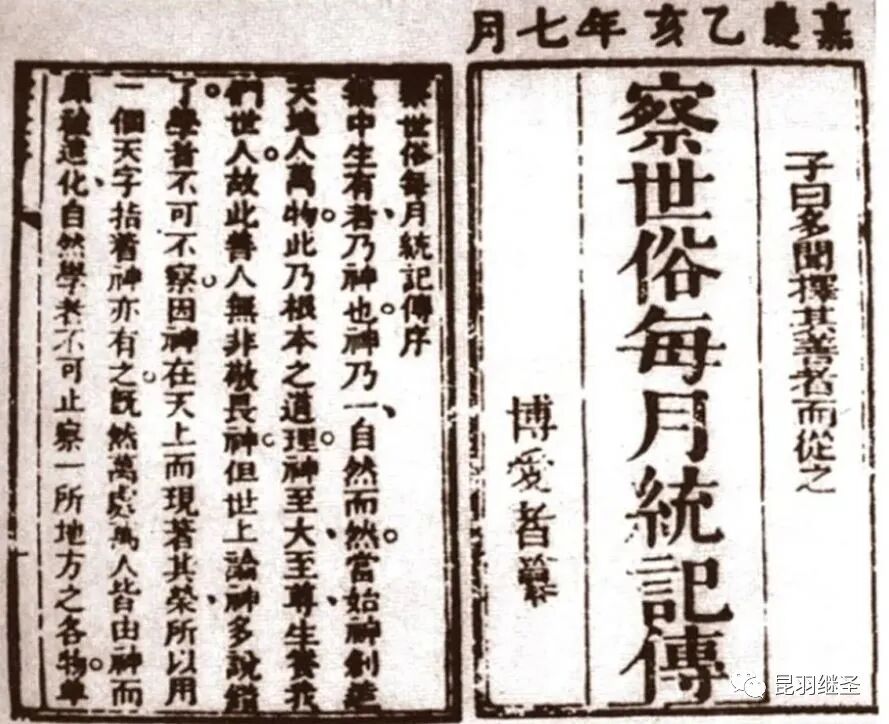 嘉慶乙亥年七月
子曰多聞擇其善者而從之
察世俗每月統記傳
博愛者纂
察世俗每月統記傳序
無中生有者乃神也。神乃一、自然而然。當始神創造
天地人萬物。此乃根本之道理。神至大、至尊、生養我
們世人。故此善人無非敬畏神。但世上論神多說錯
了。學者不可不察。因神在天上而現著其榮、所以用
一個天字指着神亦有之。既然萬處萬人皆由神而
原被造化、自然學者不可止察一所地方之各物。單
昆羽继圣